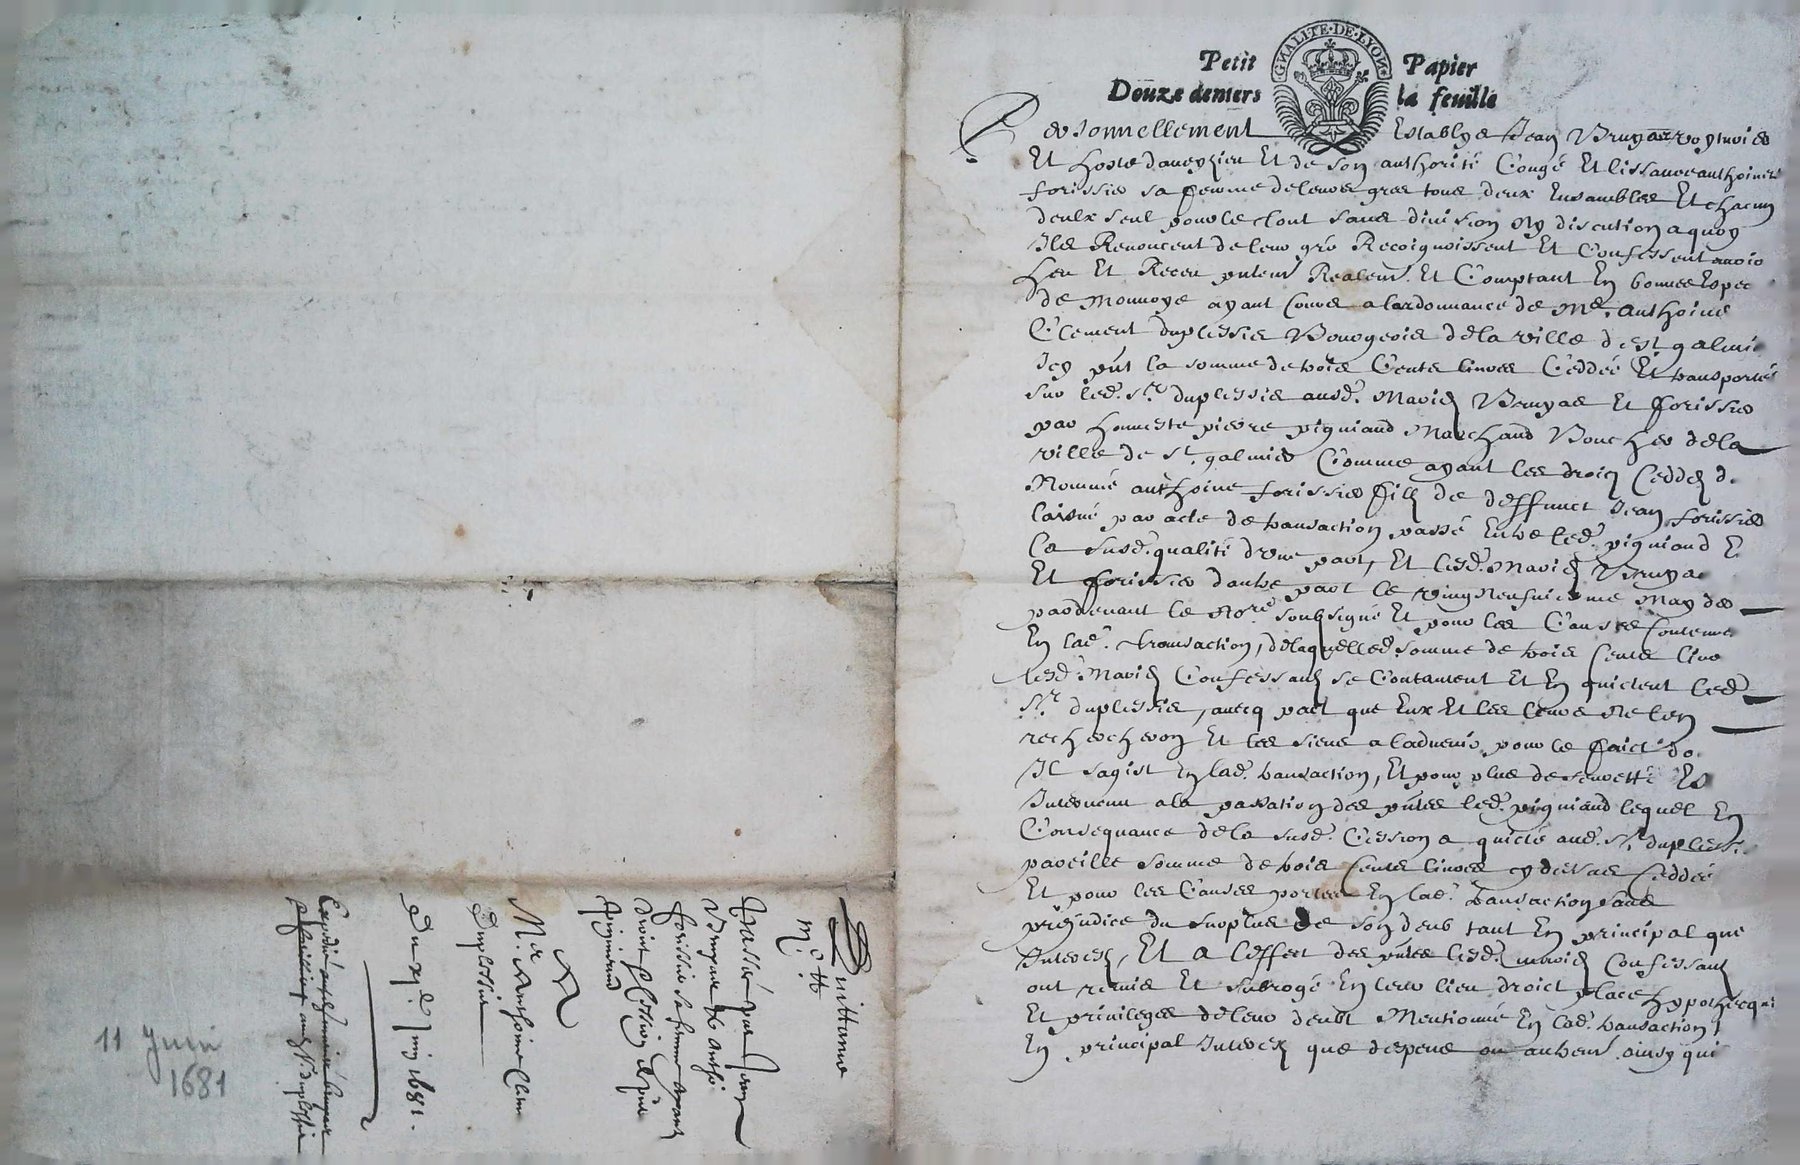 GNALITE·DE·LYON
Petit Papier
Douze deniers la feuille
Personnellement Establys Jean Bruyas
Et hoste Et de son authorité Congé Et lissance anthoinete
forissier sa femme de leurs gres tous deux Ensambles Et chacun
deulx seul pour le tout sans division Ny discution a quoy
Ils Renoncent de leur gré Recoignoissent Et Confessent avoir
heu Et Receu Realemt. Et Comptant En bonnes Espec
de Monnoye ayant Cours a lordonnance de Me. Anthoine
Clement duplessis Bourgeois de la ville de st galmie
Icy pnt la somme de trois Cents livres Ceddée Et transportée
sur led. Sr. duplessis ausd. Mariez Bruyas Et fforissier
par honneste pierre pigniaud Marchand Boucher de la
ville de St. galmier Comme ayant les droicz Ceddez d
Nommé anthoine forissier filz de deffunct Jean forissier
laisné par acte de transaction passé Entre led. pigniaud E
Ce susd. qualité dune part, Et lesd. Mariez Bruyas
Et fforissier dautre part le vingtneufviesme May der
pardevant le Nore. soubsigné Et pour les Causes Contenue
En lad. transaction, delaquelled. somme de trois Cents livr
lesd. Mariez Confessantz se Contantent Et En quictent led.
Sr. duplessis, avecq pact que Eux Et les leurs Ne len
rechercheron Et les siens a ladvenir pour le faict do
Il sagist En lad. transaction, Et pour plus de seuretté Es
Intervenu a la passation des pntes led. pigniaud lequel En
Consequance de la susd. Cession a quicté aud. Sr. dupless
pareille somme de trois Cents livres cy dessus Ceddée
Et pour les Causes portées En lad. transaction sans
préjudice du surplus de son deub tant En principal que
Interestz, Et a leffect des pntes lesd. mariez Confessantz
ont remis Et subrogé En leur lieu droict place hypothecque
Et privileges de leur deubt Mentionné En lad. transaction
En principal Interestz que despens ou autremt. ainsy qui
Quittance
Passé par Jean
Bruyas & Antho
forissier sa femme ayant
droict de pierre
pigniaud
A
Mr. Anthoine Clem
Duplessis
Du xj.e Juin 1681.
11 Juin
1681